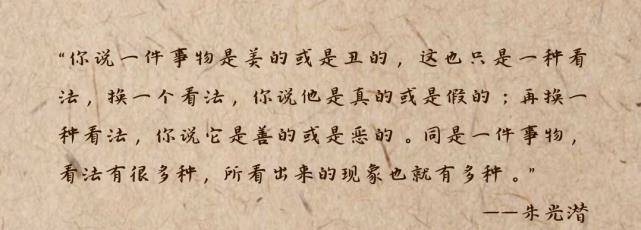 “你说一件事物是美的或是丑的，这也只是一种看
法，换一个看法，你说他是真的或是假的；再换一
种看法，你说它是善的或是恶的。同是一件事物，
看法有很多种，所看出来的现象也就有多种。”
——朱光潜